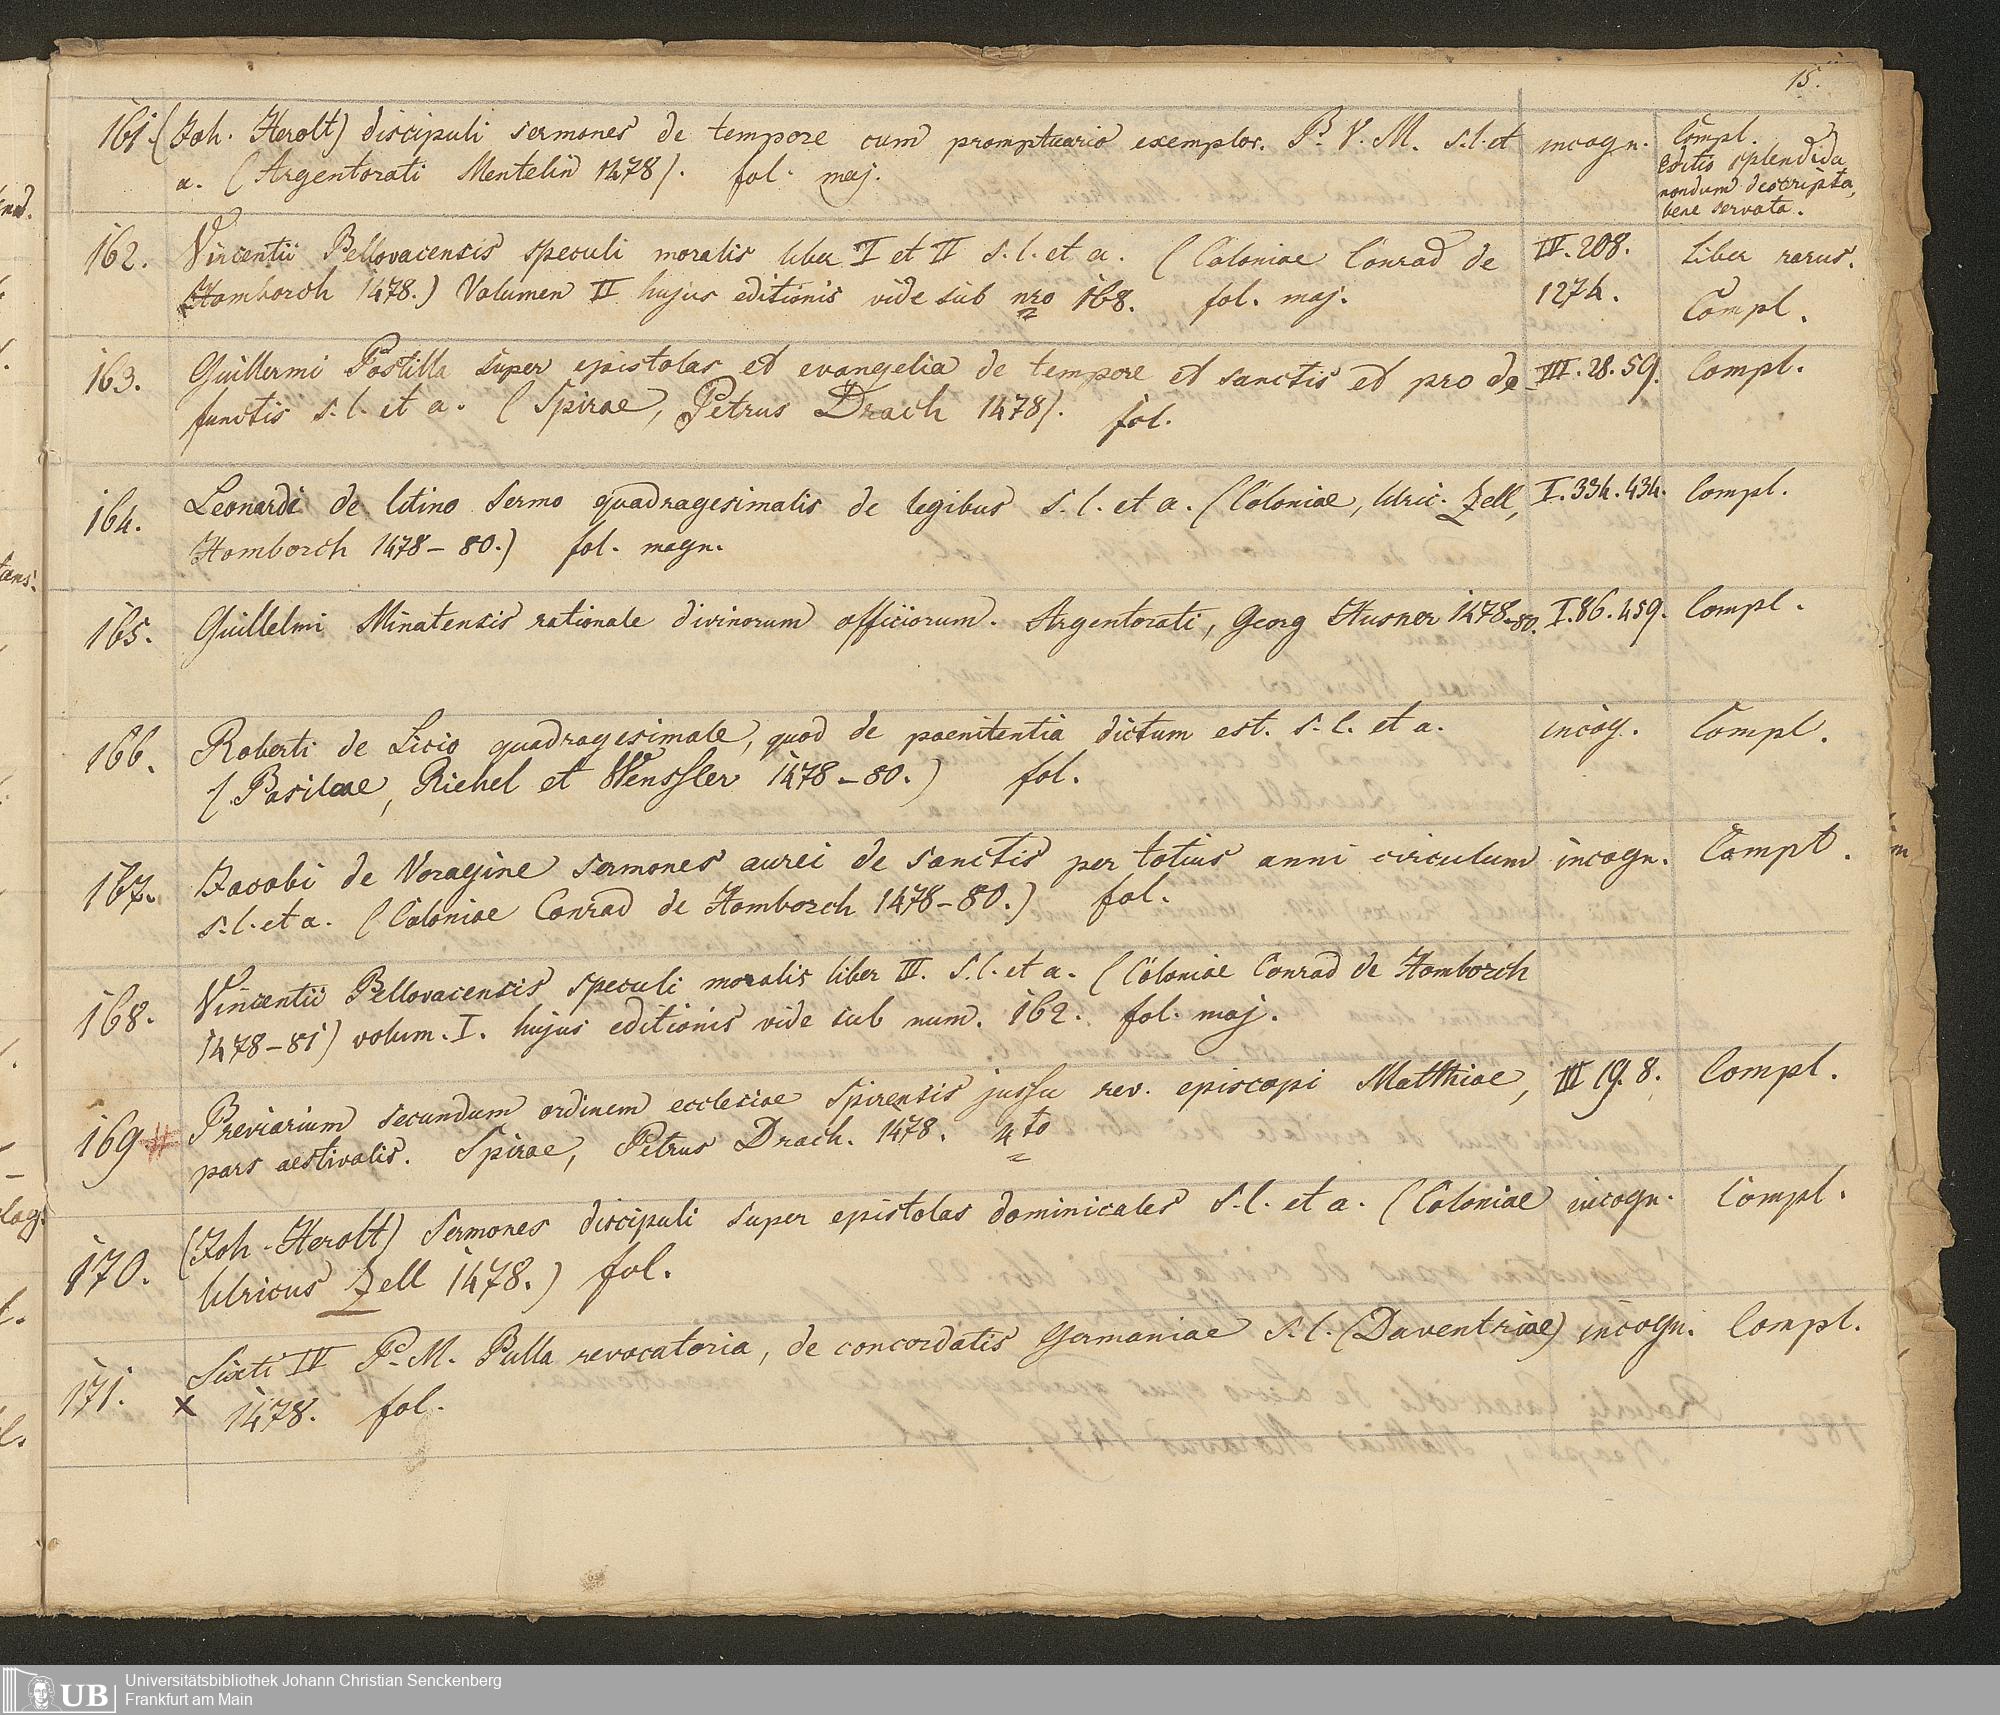 15.
161. (Joh. Herolt) discipuli sermones de tempore cum promptuario exemplor. B. V. M. s. l. et incogn. Compl.
a. (Argentorati Mentelin 1478). fol. maj. Editio splendida
nondum descripta,
bene servata.
162. Vincentii Bellovacensis speculi moralis liber I et II s. l. et a. (Coloniae Conrad de IV. 208. Liber rarus.
Homborch 1478.) Volumen II hujus editionis vide sub nro 168. fol. maj. 1274. Compl.
163. Guillermi Postilla super epistolas et evangelia de tempore et sanctis et pro de- III. 28. 59. Compl.
functis s. l. et a. (Spirae, Petrus Drach 1478). fol.
164. Leonardi de Utino sermo quadragesimalis de legibus s. l. et a. (Coloniae, Ulric. Zell, I. 334. 434. Compl.
Homborch 1478-80.) fol. magn.
165. Guillelmi Minatensis rationale divinorum officiorum. Argentorati, Georg Husner 1478-80. I. 86. 459. Compl.
166. Roberti de Licio quadragesimale, quod de paenitentia dictum est. s. l. et a. incog. Compl.
(Basileae, Richel et Wenssler 1478-80.) fol.
167. Jacobi de Voragine sermones aurei de sanctis per totius anni circulum incogn. Compl.
s. l. et a. (Coloniae Conrad de Homborch 1478-80.) fol.
168. Vincentii Bellovacensis speculi moralis liber III. s. l. et a. (Coloniae Conrad de Homborch
1478-81) volum. I. hujus editionis vide sub num. 162. fol. maj.
169 # Breviarium secundum ordinem ecclesiae Spirensis jussu rev. episcopi Matthiae, III 19. 8. Compl.
pars aestivalis. Spirae, Petrus Drach. 1478. 4to
170. (Joh. Herolt) Sermones discipuli super epistolas dominicales s. l. et a. (Coloniae incogn. Compl.
Ulricus Zell 1478.) fol.
171. Sixti IV P. M. Bulla revocatoria, de concordatis Germaniae s. l. (Daventriae) incogn. Compl.
x 1478. fol.
UB
Universitätsbibliothek Johann Christian Senckenberg
Frankfurt am Main